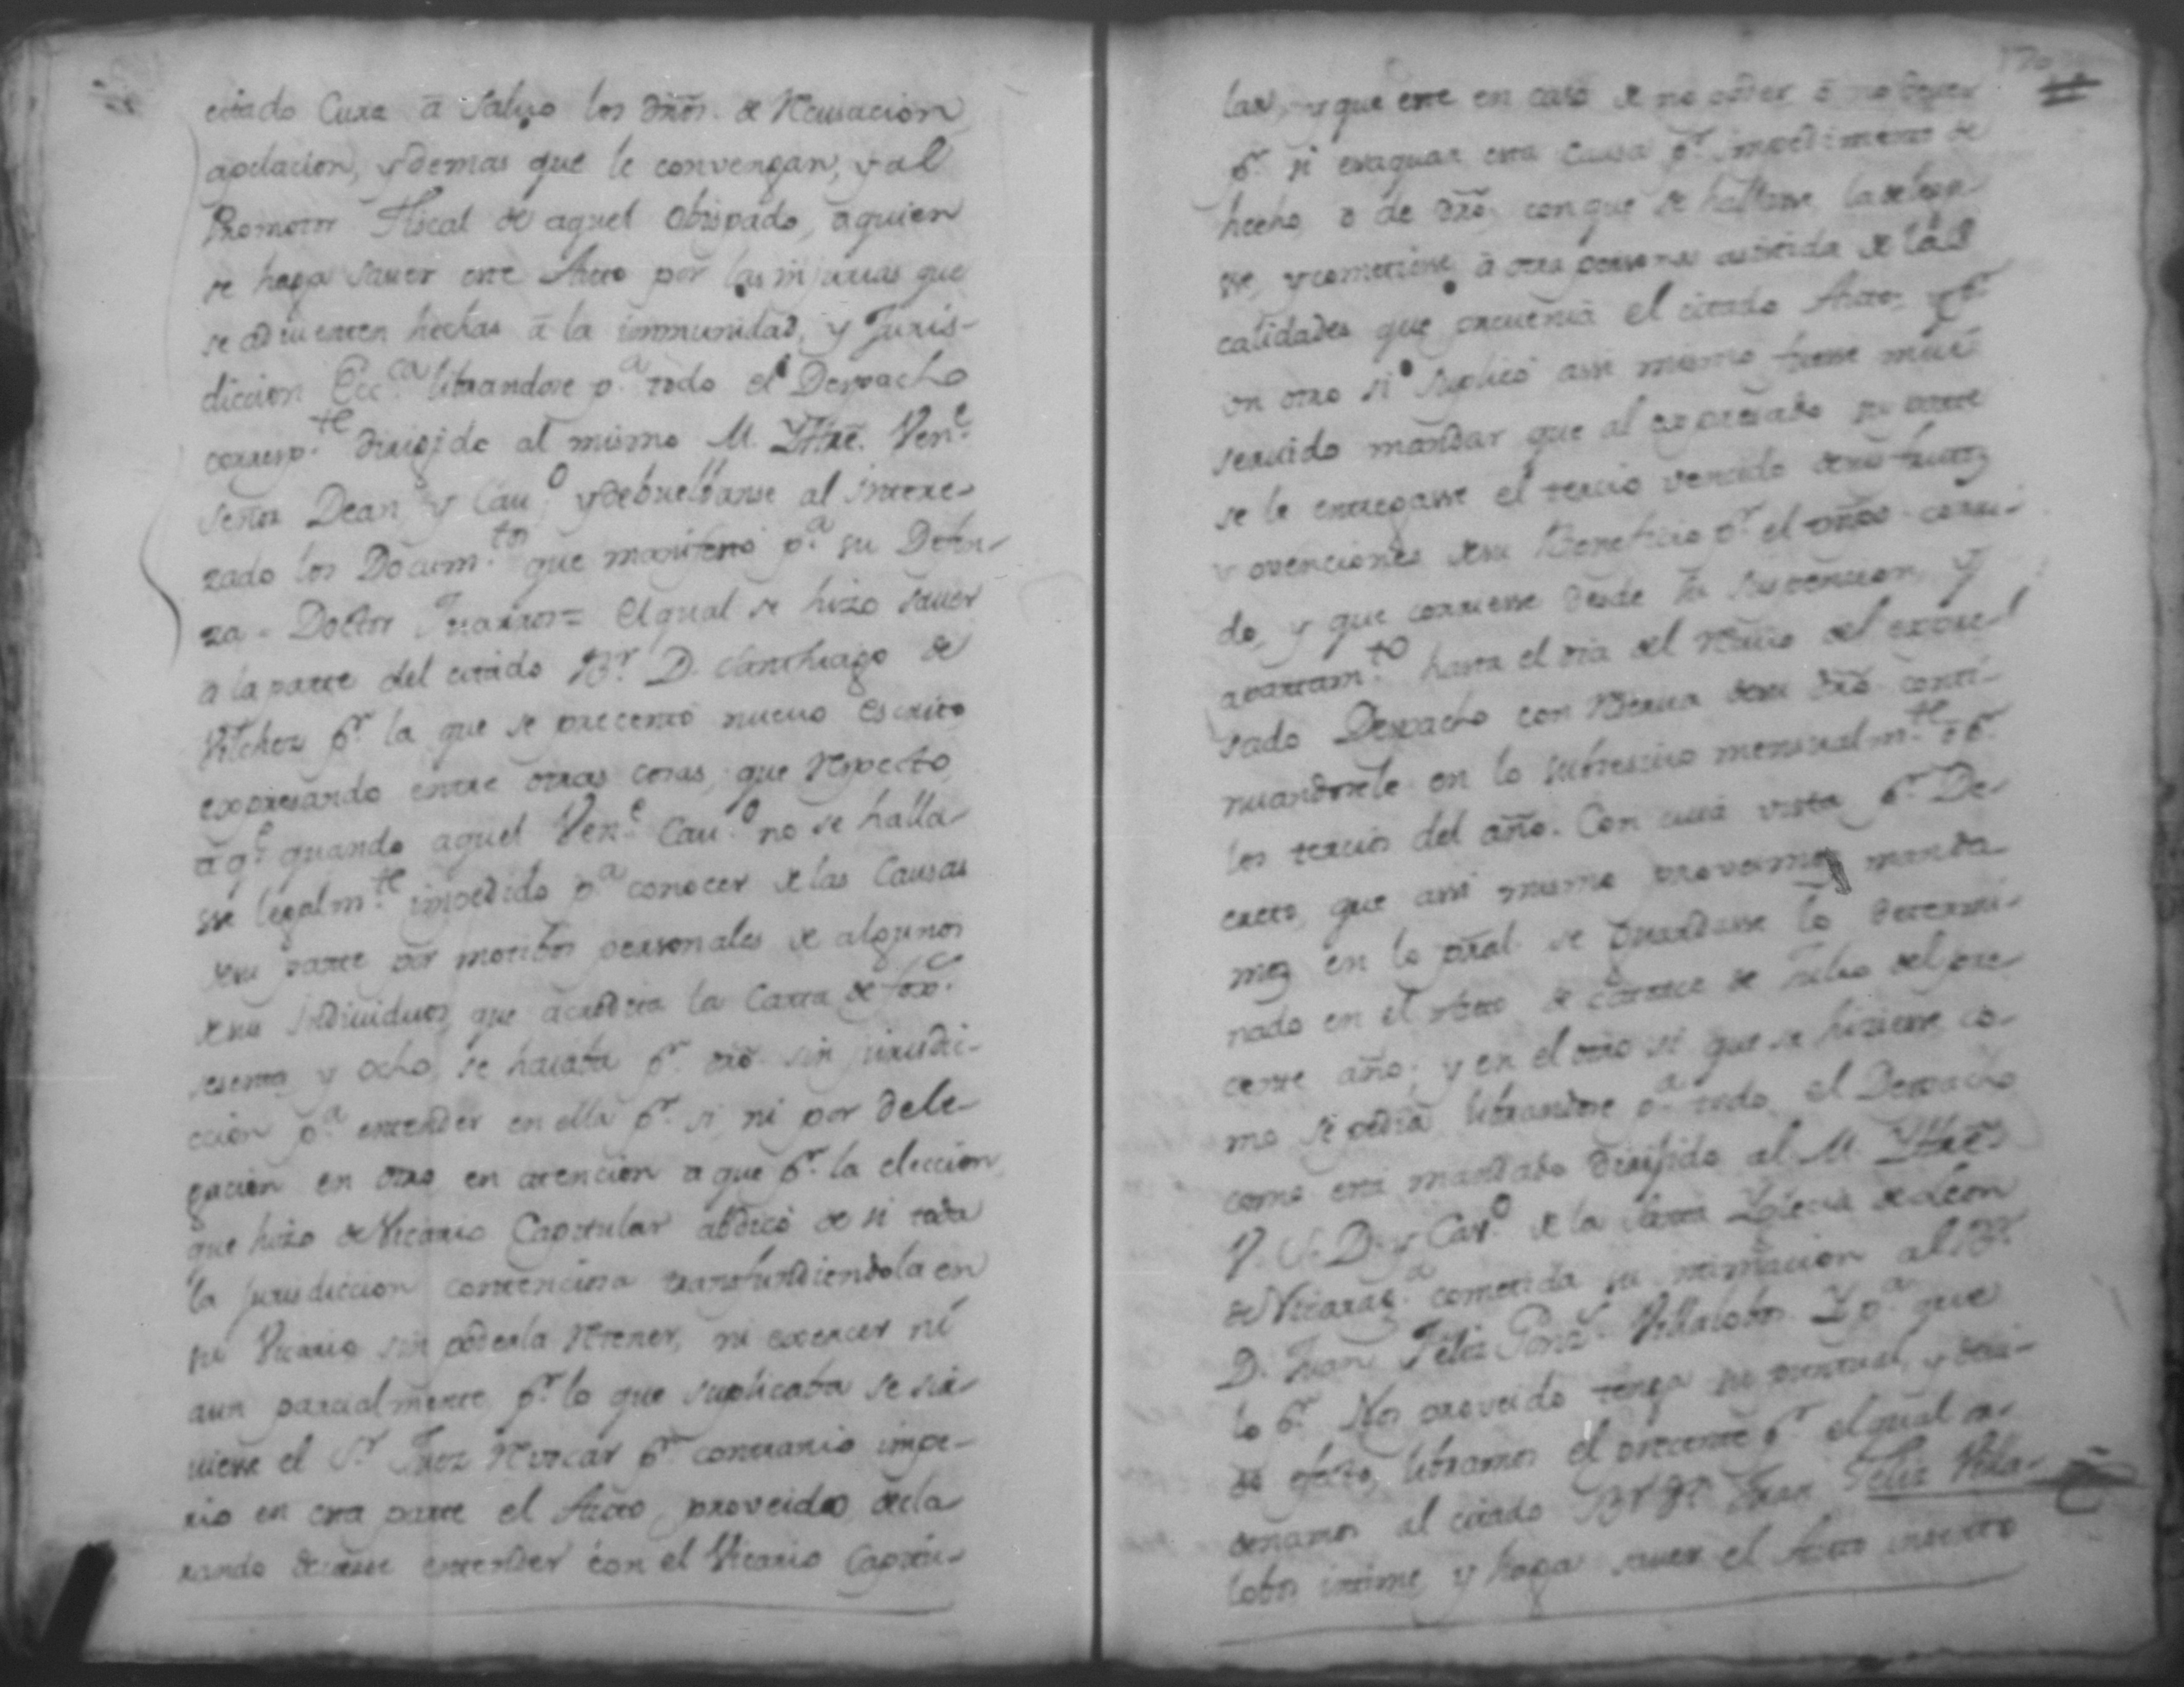 citado Cura â salvo los dr̃os. de Recusacion
apelacion, y demas que le convengan, y al
Promotor Fiscal de aquel Obispado, aquien
se haga saver este Auto por las injurias que
se advierten hechas â la immunidad, y Juris-
diccion Ecc.ca librandose p.a todo el Despacho
corresp.te dirigido al mismo M. Yltre. Ven.e
Señor Dean, y Cav.o y debuelbanse al intere-
zado los Docum.tos que manifestó p.a su Defen-
za = Doctor Juarros = El qual se hizo saver
a la parte del citado B.r D. Santhiago de
Vilchez p.r la que se precentó nuevo escrito
expresando entre otras cosas, que respecto
â q.e quando aquel Ven.e Cav.o no se halla-
sse legalm.te impedido p.a conocer de las Causas
de su parte por motibos personales de algunos
de su individuos, que acredita la Carta de fox.s
sesenta y ocho, se hallaba p.r dr̃o. sin jurisdic-
ccion p.a entender en ella p.r si, ni por dele-
gacion en otro en atencion a que p.r la eleccion
que hizo de Vicario Capitular abdicó de si toda
la jurisdiccion contenciosa transfundiendola en
su Vicario sin poderla retener, ni exercer ni
aun parcialmente p.r lo que suplicaba se sir-
viesse el S.r Juez revocar p.r contrario impe-
rio en esta parte el Auto proveido, decla-
rando deverse entender con el Vicario Capitu-
lar, y que este en caso de no poder ô no dever
p.r si evaquar esta causa p.r impedimento de
hecho, o de dr̃o. con que se hallasse la delega-
sse, y cometiesse â otra persona asistida de las
calidades que prevenia el citado Auto, y p.r
un otro si suplicó assi mismo fuesse
servido mandar que al expresado su parte
se le entregasse el tercio vencido de los frutos
y obenciones de su Beneficio p.r el corri-
do, y que corriesse desde su suspencion, y
apartam.to hasta el dia del recivo del expre-
sado Despacho con reserva de su dr̃o. conti-
nuandosele en lo subcesivo mensualm.te o p.r
los tercios del año. Con cuia vista p.r De-
creto, que assi mismo proveimos manda-
mos en lo pr̃al. se guardasse lo determi-
nado en el Auto de catorce de Julio del pre-
cente año; y en el otro si que se hiziesse co-
mo se pedia, librandose p.a todo el Despacho
como esta mandado dirigido al M. Yltre
V. S. D. y Cav.o de la Santa Yglecia de Leon
de Nicarag.a cometida su intimacion al B.r
D. Juan Feliz Villalobos. Y p.a que
lo p.r Nos proveido tenga su puntual, y devi-
do efecto, libramos el precente p.r el qual or-
denamos al citado B.r D.n Juan Feliz Villa-
lobos intime, y haga saver el Auto inserto